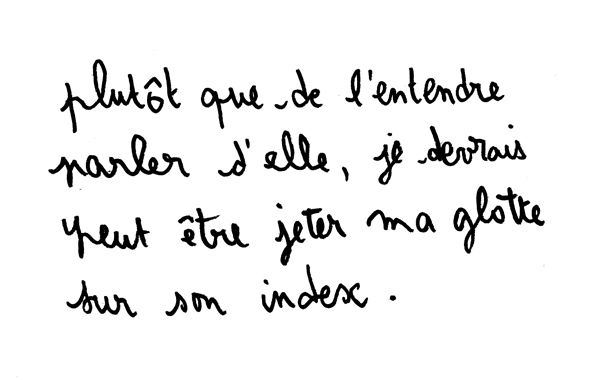 plutôt que de l'entendre
parler d'elle, je devrais
peut être jeter ma glotte
sur son index.